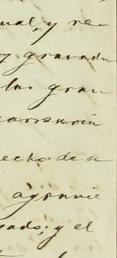 ual, y re
y gravada
las gran
carrerin
echo de a
agranie
gado; y el